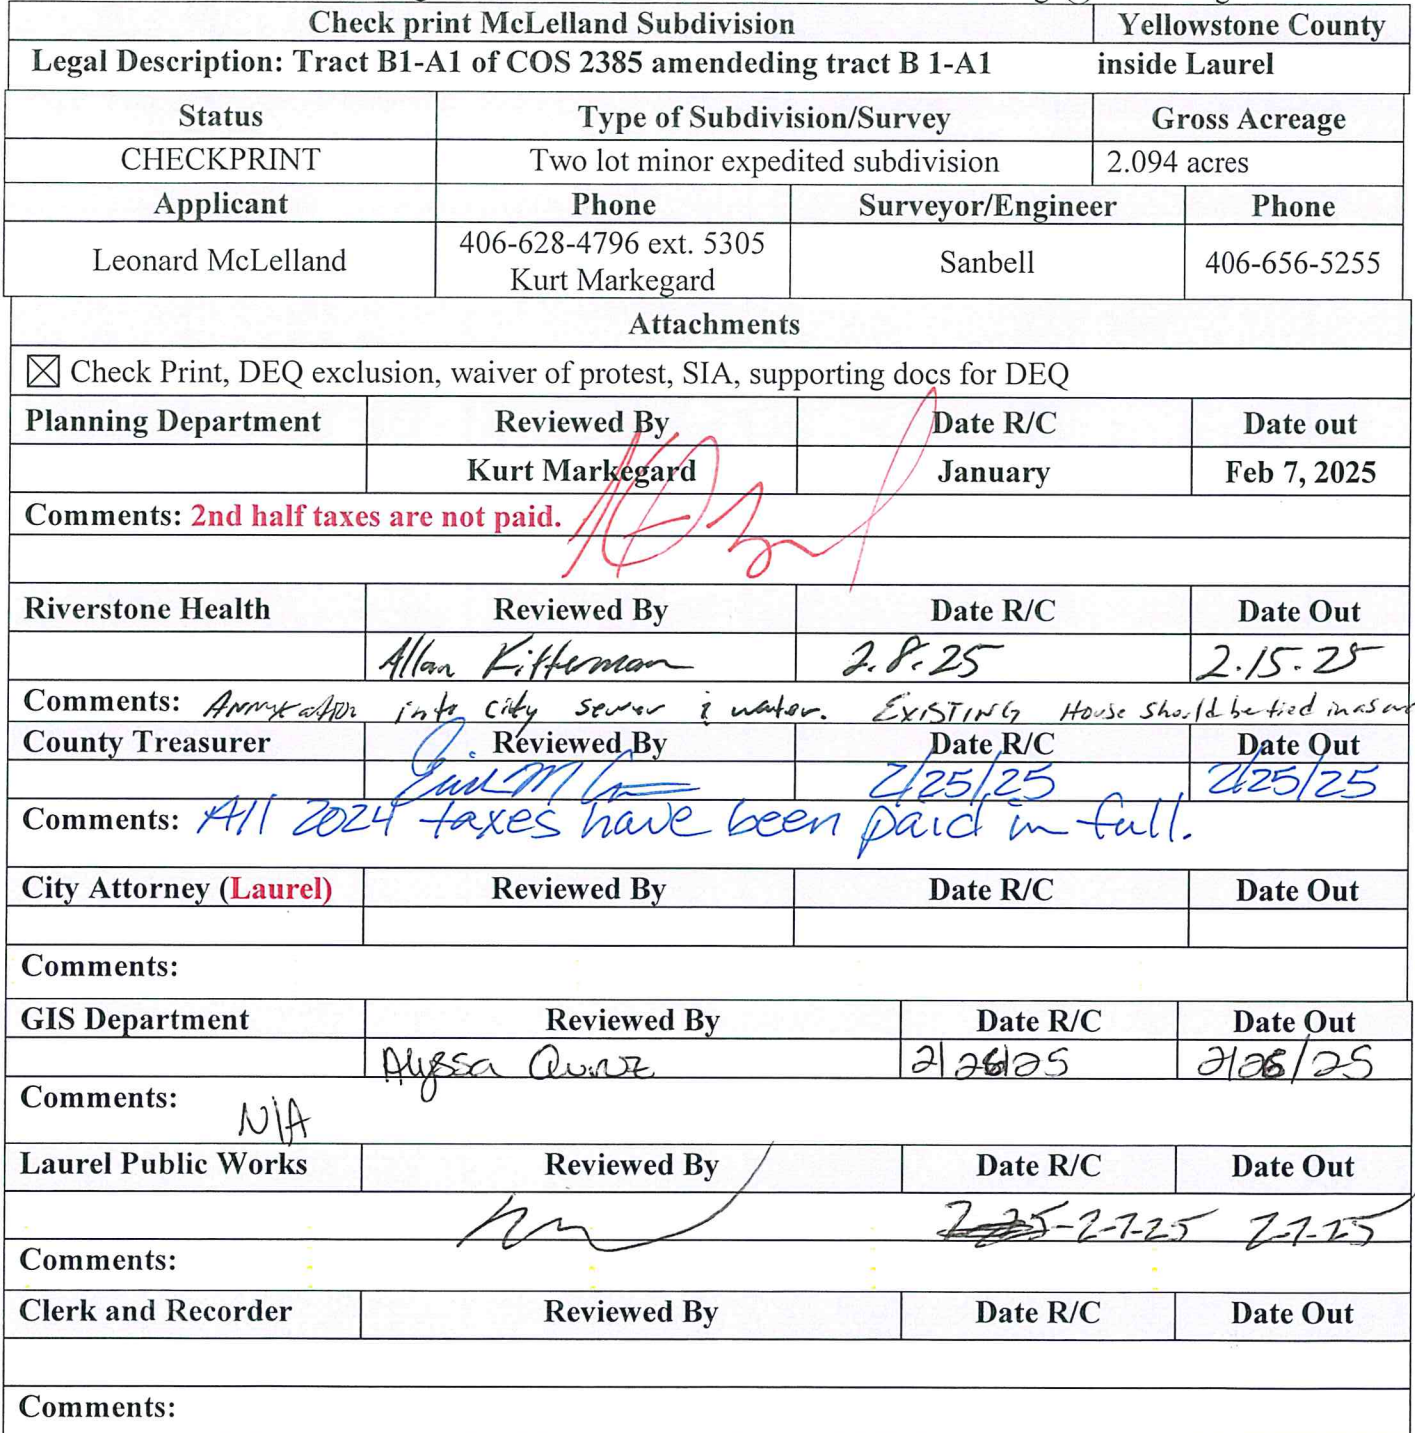 Check print McLelland Subdivision Yellowstone County
Legal Description: Tract B1-A1 of COS 2385 amendeding tract B 1-A1 inside Laurel
Status Type of Subdivision/Survey Gross Acreage
CHECKPRINT Two lot minor expedited subdivision 2.094 acres
Applicant Phone Surveyor/Engineer Phone
Leonard McLelland 406-628-4796 ext. 5305 Kurt Markegard Sanbell 406-656-5255
Attachments
☒ Check Print, DEQ exclusion, waiver of protest, SIA, supporting docs for DEQ
Planning Department Reviewed By Date R/C Date out
Kurt Markegard January Feb 7, 2025
Comments: 2nd half taxes are not paid.
Riverstone Health Reviewed By Date R/C Date Out
Allan 2.8.25 2.15.25
Comments: Annexation into city sewer & water. EXISTING House should be tied in as
County Treasurer Reviewed By Date R/C Date Out
2/25/25 2/25/25
Comments: All 2024 taxes have been paid in full.
City Attorney (Laurel) Reviewed By Date R/C Date Out
Comments:
GIS Department Reviewed By Date R/C Date Out
Alyssa 2/26/25 2/26/25
Comments:
N/A
Laurel Public Works Reviewed By Date R/C Date Out
2-7-25 2-7-25
Comments:
Clerk and Recorder Reviewed By Date R/C Date Out
Comments: